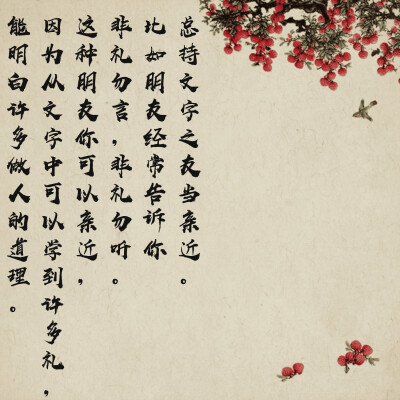 总持文字之友当亲近。
比如明友经常告诉你
非礼勿言，非礼勿听。
这种明友你可以亲近，
因为从文字中可以学到许多礼，
能明白许多做人的道理。